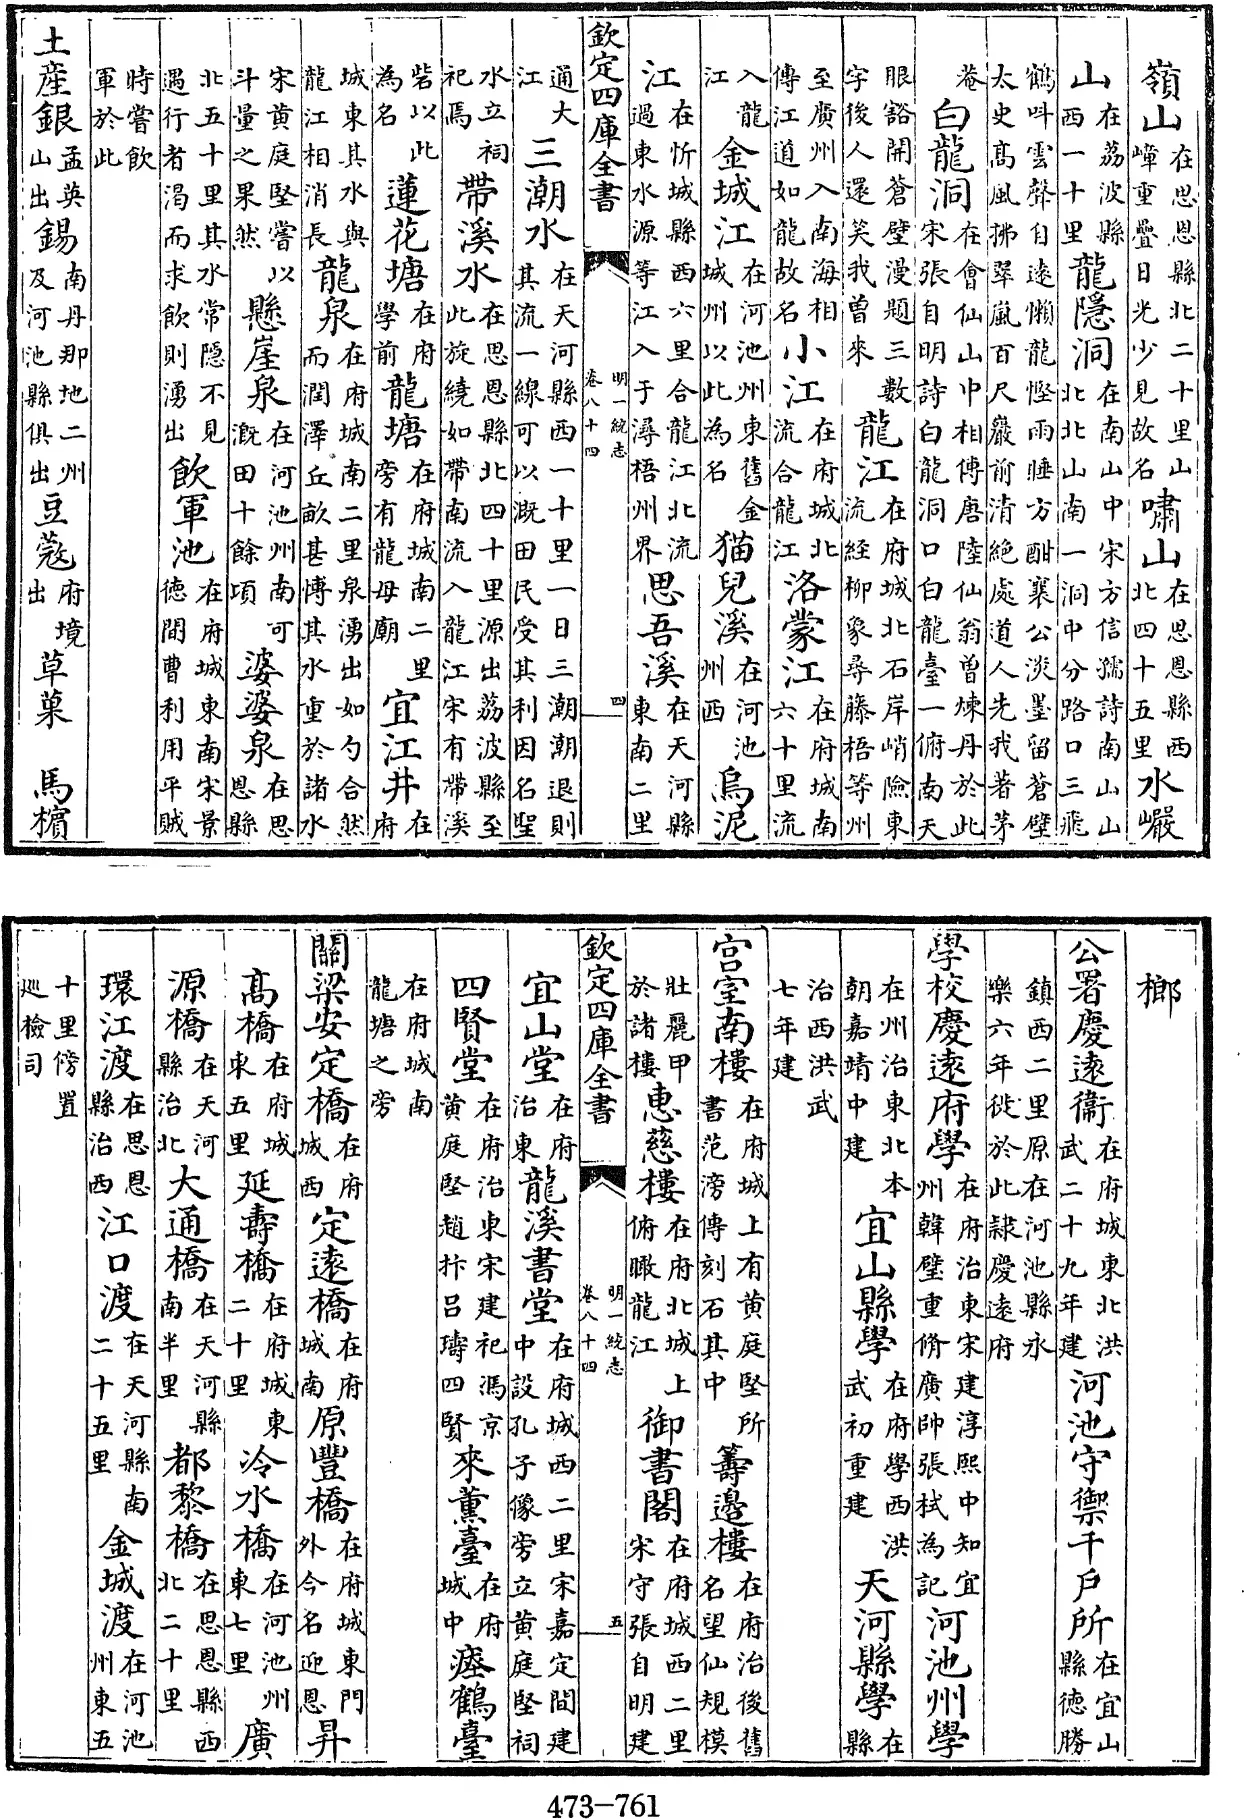 嶺山在思恩縣北二十里山嶂重疊日光少見故名嘯山在思恩縣西北四十五里水巖
山在荔波縣西一十里龍隱洞在南山中宋方信孺詩南山山北北山南一洞中分路口三飛
鶴呌雲聲自遠懶龍慳雨睡方酣襄公淡墨留蒼壁太史髙風拂翠嵐百尺巖前清絶處道人先我著茅
菴白龍洞在會仙山中相傳唐陸仙翁曽煉丹於此宋張自明詩白龍洞口白龍臺一俯南天
眼豁開蒼壁漫題三數字後人還笑我曽來龍江在府城北石岸峭險東流經柳象尋藤梧等州
至廣州入南海相傳江道如龍故名小江在府城北流合龍江洛蒙江在府城南六十里流
入龍江金城江在河池州東舊金城州以此為名猫兒溪在河池州西烏泥
江在忻城縣西六里合龍江北流過東水源等江入于潯梧州界思吾溪在天河縣東南二里
欽定四庫全書 明一統志卷八十四 四
通大江三潮水在天河縣西一十里一日三潮潮退則其流一線可以溉田民受其利因名聖
水立祠祀焉帶溪水在思恩縣北四十里源出荔波縣至此旋繞如帶南流入龍江宋有帶溪
砦以此為名蓮花塘在府學前龍塘在府城南二里旁有龍母廟宜江井在府
城東其水與龍江相消長龍泉在府城南二里泉湧出如勺合然而潤澤丘畝甚愽其水重於諸水
宋黄庭堅嘗以斗量之果然懸崖泉在河池州南可溉田十餘項婆婆泉在思恩縣
北五十里其水常隱不見遇行者渴而求飲則湧出飲軍池在府城東南宋景德間曹利用平賊
時嘗飲軍於此
土産銀孟英山出錫南丹那地二州及河池縣俱出豆蔻府境出草菓 馬檳
榔
公署慶遠衞在府城東北洪武二十九年建河池守禦千戶所在宜山縣德勝
鎮西二里原在河池縣永樂六年徙於此隷慶遠府
學校慶遠府學在府治東宋建淳熙中知宜州韓璧重脩廣帥張栻為記河池州學
在州治東北本朝嘉靖中建宜山縣學在府學西洪武初重建天河縣學在縣
治西洪武七年建
宫室南樓在府城上有黄庭堅所書范滂傳刻石其中籌邊樓在府治後舊名望仙規模
壯麗甲於諸樓惠慈樓在府北城上俯瞰龍江御書閣在府城西二里宋守張自明建
欽定四庫全書 明一統志卷八十四 五
宜山堂在府治東龍溪書堂在府城西二里宋嘉定間建中設孔子像旁立黄庭堅祠
四賢堂在府治東宋建祀馮京黄庭堅趙抃吕璹四賢來薰臺在府城中瘞鶴臺
在府城南龍塘之旁
關梁安定橋在府城西定遠橋在府城南原豐橋在府城東門外今名迎恩昇
髙橋在府城東五里延壽橋在府城東二十里冷水橋在河池州東七里廣
源橋在天河縣治北大通橋在天河縣南半里都黎橋在思恩縣西北二十里
環江渡在思恩縣治西江口渡在天河縣南二十五里金城渡在河池州東五
十里傍置巡檢司
473-761